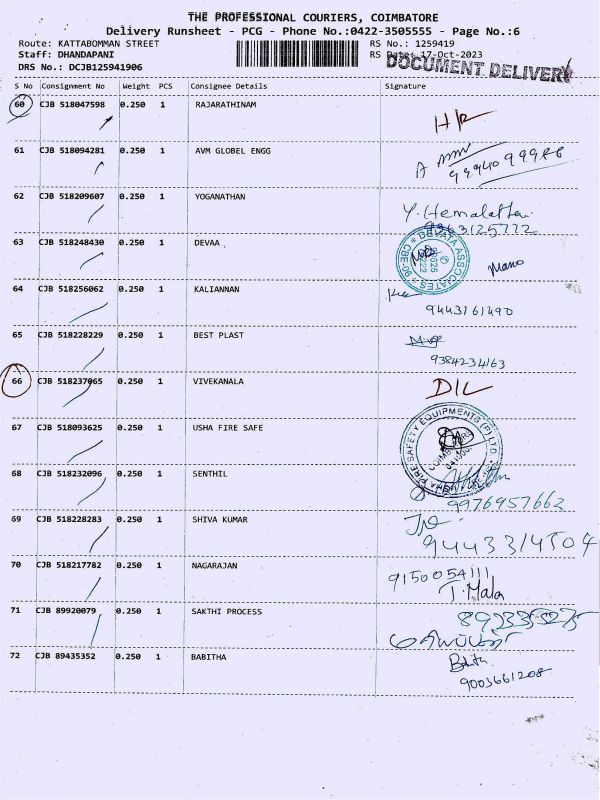 THE PROFESSIONAL COURIERS, COIMBATORE
Delivery Runsheet - PCG - Phone No.:0422-3505555 - Page No.:6
Route: KATTABOMMAN STREET RS No.: 1259419
Staff: DHANDAPANI RS Date: 17-Oct-2023
DOCUMENT DELIVERY
DRS No.: DCJB125941906
S No Consignment No Weight PCS Consignee Details Signature
60 CJB 518047598 0.250 1 RAJARATHINAM
61 CJB 518094281 0.250 1 AVM GLOBEL ENGG
62 CJB 518209607 0.250 1 YOGANATHAN Y. Hemalatha
9963125772
63 CJB 518248430 0.250 1 DEVAA Mano
DEVATA ASSOCIATES
64 CJB 518256062 0.250 1 KALIANNAN
9443161490
65 CJB 518228229 0.250 1 BEST PLAST
9384234163
66 CJB 518237065 0.250 1 VIVEKANALA D/L
67 CJB 518093625 0.250 1 USHA FIRE SAFE
USHA FIRE SAFETY EQUIPMENTS (P) LTD.
68 CJB 518232096 0.250 1 SENTHIL
9976957662
69 CJB 518228283 0.250 1 SHIVA KUMAR
9443314504
70 CJB 518217782 0.250 1 NAGARAJAN 9150054111
T. Mala
71 CJB 89920079 0.250 1 SAKTHI PROCESS
72 CJB 89435352 0.250 1 BABITHA
9003661208